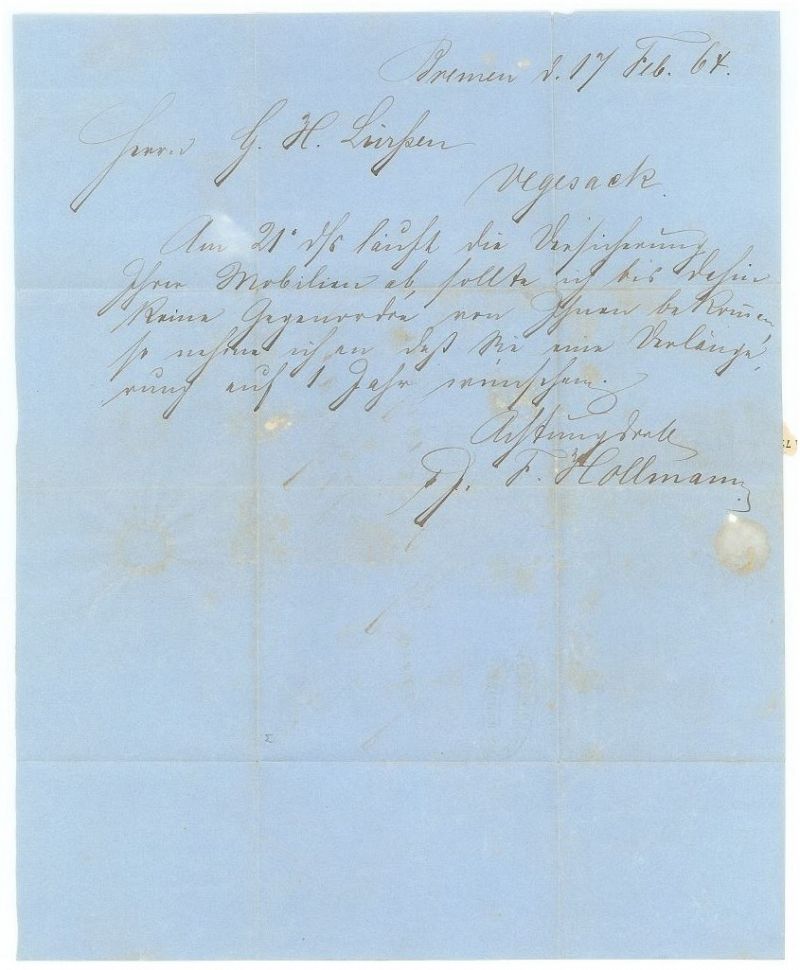 Bremen d. 17 Feb. 64.
Herrn G. H. Lürßen
Vegesack.
Am 21' d/s läuft die Versicherung
Ihrer Mobilien ab, sollte ich bis dahin
keine Gegenordre von Ihnen bekom̄en,
so nehme ich an daß Sie eine Verlänge,
rung auf 1 Jahr wünschen.
Achtungsvoll
F. Hollmann